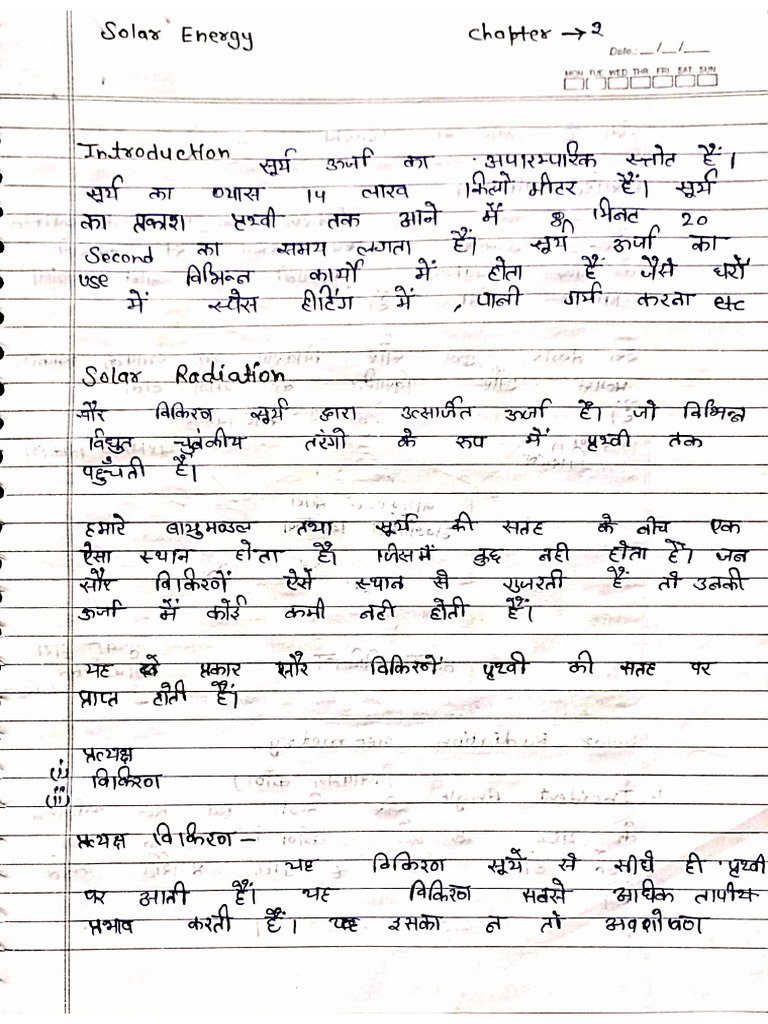 Solar Energy Chapter → 2
Date:__/__/__
MON TUE WED THR FRI SAT SUN
Introduction सूर्य ऊर्जा का अपारम्पारिक स्त्रोत हैं।
सूर्य का व्यास 14 लाख किलो मीटर हैं। सूर्य
का प्रकाश प्रथ्वी तक आने में 8 मिनट 20
Second का समय लगता हैं। सूर्य ऊर्जा का
use विभिन्न कार्यो में होता हैं जैसे घरों
में स्पेस हीटिंग में, पानी गर्म करना etc
Solar Radiation
सौर विकिरण सूर्य द्वारा उत्सर्जित ऊर्जा है। जो विभिन्न
विद्युत चुंबकीय तरंगो के रूप में प्रथ्वी तक
पहुँचती हैं।
हमारे वायुमण्डल तथा सूर्य की सतह के बीच एक
ऐसा स्थान होता हैं। जिसमें कुछ नही होता हैं। जब
सौर विकिरणें ऐसें स्थान से गुजरती हैं तो उनकी
ऊर्जा में कोई कमी नही होती हैं।
यह प्रकार सौर विकिरणें पृथ्वी की सतह पर
प्राप्त होती हैं।
(i) प्रत्यक्ष
(ii) विकिरण
प्रत्यक्ष विकिरण –
यह विकिरण सूर्य से सीधे ही पृथ्वी
पर आती हैं। यह विकिरण सबसे अधिक तापीय
प्रभाव करती हैं। इसका न तो अवशोषण